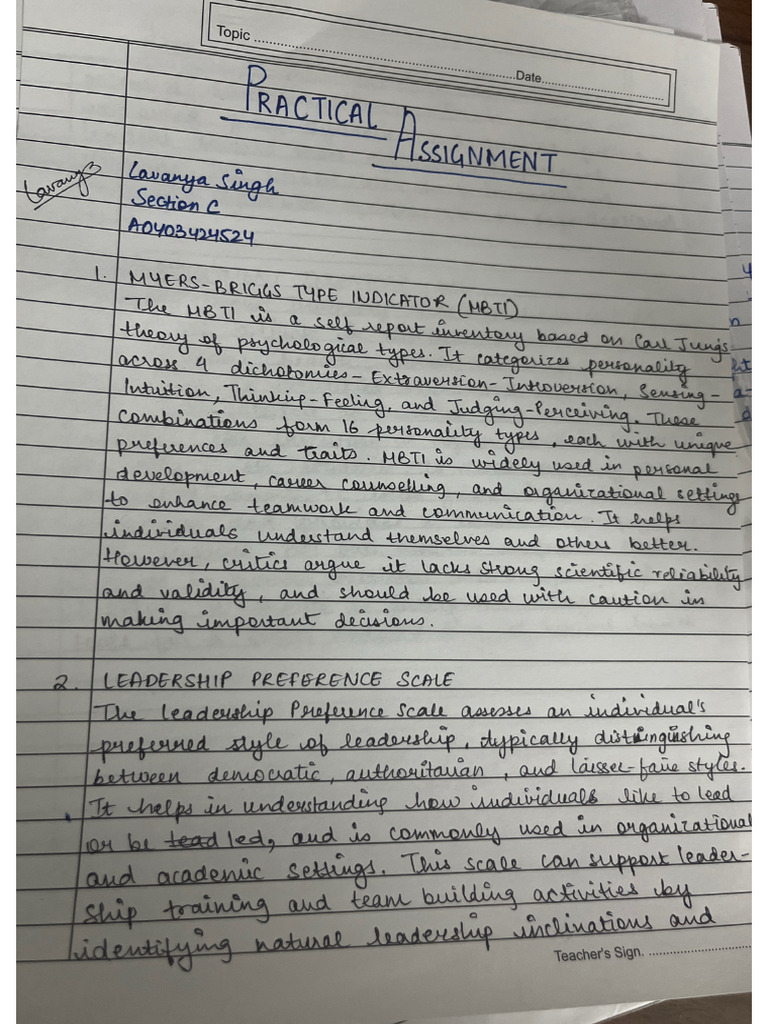 Topic ........................................
Date........................................
PRACTICAL
ASSIGNMENT
Lavanya
Lavanya Singh
Section C
A0403424524
1. MYERS-BRIGGS TYPE INDICATOR (MBTI)
The MBTI is a self report inventory based on Carl Jung's
theory of psychological types. It categorizes personality
across 4 dichotomies - Extraversion-Introversion, Sensing-
Intuition, Thinking-Feeling, and Judging-Perceiving. These
combinations form 16 personality types, each with unique
preferences and traits. MBTI is widely used in personal
development, career counselling, and organizational settings
to enhance teamwork and communication. It helps
individuals understand themselves and others better.
However, critics argue it lacks strong scientific reliability
and validity, and should be used with caution in
making important decisions.
2. LEADERSHIP PREFERENCE SCALE
The Leadership Preference Scale assesses an individual's
preferred style of leadership, typically distinguishing
between democratic, authoritarian, and laissez-faire styles.
It helps in understanding how individuals like to lead
or be lead led, and is commonly used in organizational
and academic settings. This scale can support leader-
ship training and team building activities by
identifying natural leadership inclinations and
Teacher's Sign. ........................